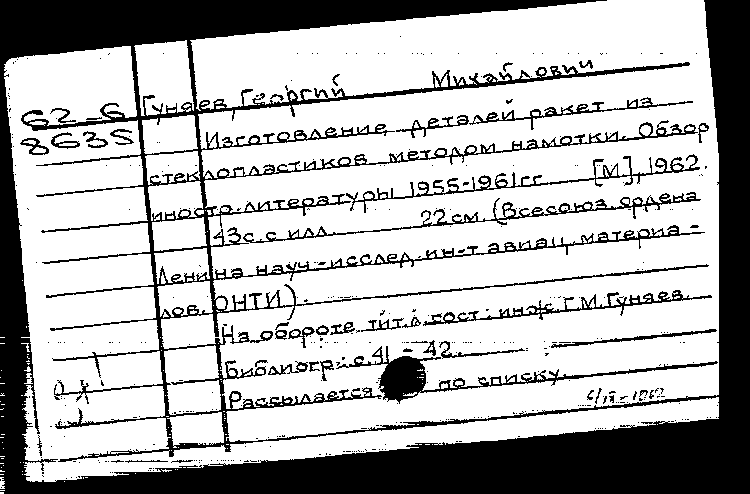 62-6 Гуняев, Георгий Михайлович
8635 Изготовление деталей ракет из
стеклопластиков методом намотки. Обзор
иностр. литературы 1955-1961гг [М], 1962.
43с. с илл. 22см. (Всесоюз. ордена
Ленина науч-исслед. ин-т авиац. материа-
лов. ОНТИ).
На обороте тит. л. сост.: инж. Г.М. Гуняев.
Библиогр.: с. 41 - 42.
Рассылается по списку.